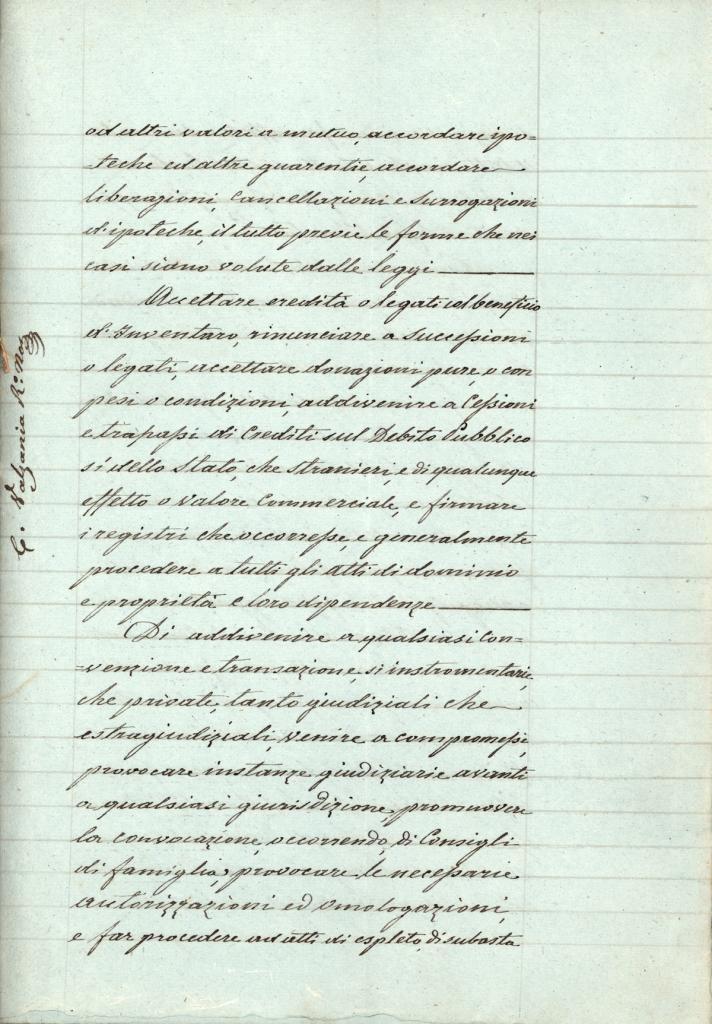 od altri valori a mutuo, accordare ipo=
teche ed altre guarentie, accordare
liberazioni, Cancellazioni e Surrogazioni
d'ipoteche, il tutto previe le forme che nei
casi siano volute dalle leggi
Accettare eredità o legati col beneficio
d'Inventaro, rinunciare a Successioni
o legati, accettare donazioni pure, o con
pesi o condizioni, addivenire a Cessioni
e trapassi di Crediti sul Debito Pubblico
sì dello Stato, che stranieri, e di qualunque
effetto o valore Commerciale, e firmare
i registri che occorresse, e generalmente
procedere a tutti gli atti di dominio
e proprietà e loro dipendenze
Di addivenire a qualsiasi Con=
=venzione e transazione sì instromentarie,
che private, tanto giudiziali che
estragiudiziali, venire a compromessi,
provocare instanze giudiziarie avanti
a qualsiasi giurisdizione, promuovere
la convocazione, occorrendo, di Consigli
di famiglia, provocare le necessarie
autorizzazioni ed omologazioni,
e far procedere ad atti di espleto, di subasta
C. Valzania R.º Not.